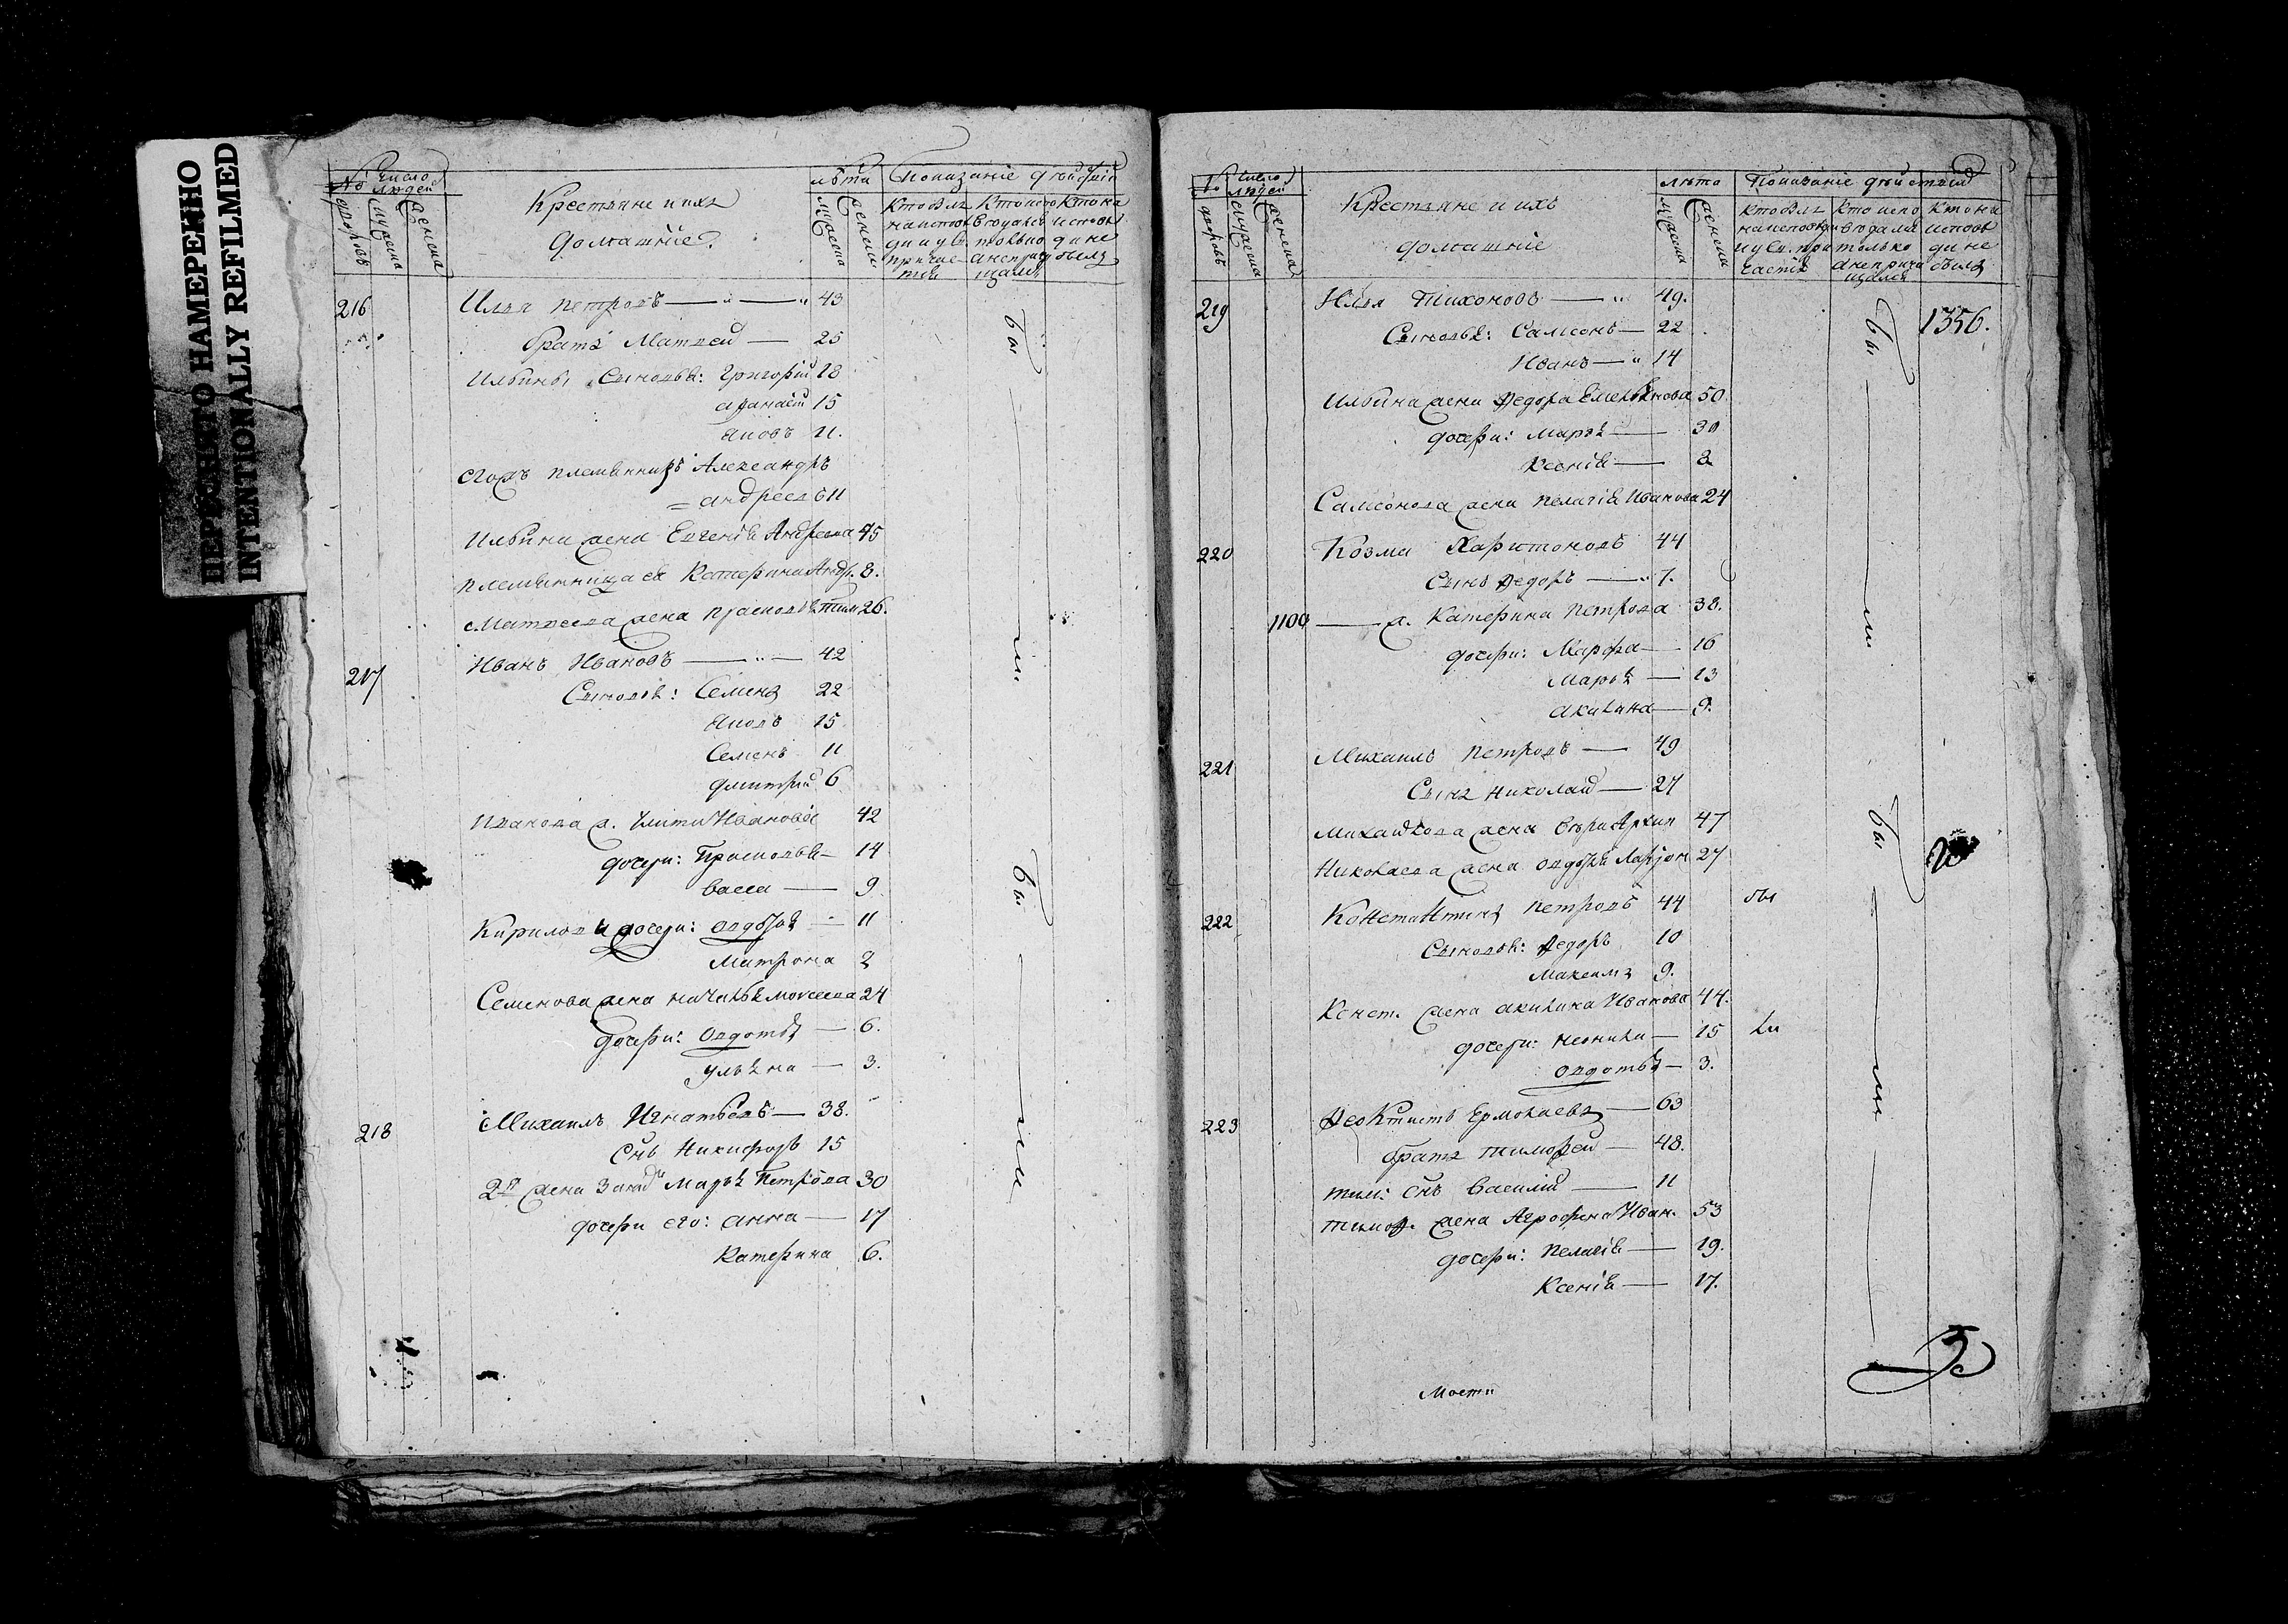 ПЕРЕСНЯТО НАМЕРЕННО
INTENTIONALLY REFILMED
№ дворовъ
Число людей
мужеска
женска
Крестьяне и ихъ
домашніе
лѣта
мужеска
женска
Показаніе дѣйствій
Кто былъ
на исповѣ
ди и у св
причас
тія
Кто испо
вѣдался
только
а не прича
щался
Кто на
исповѣ
ди не
былъ
216 Илья Петровъ 43
братъ Матвей 25
Ильины Сыновья: Григорій 18
Афанасій 15
Яковъ 11.
ихъ племянникъ Александръ
= андреевъ 11
Ильина жена Евгенія Андреева 45
племянница ея Катерина Андр. 8.
Матвеева жена Прасковья Тим 26.
217 Иванъ Ивановъ 42
Сыновья: Семенъ 22
Яковъ 15
Семенъ 11
Дмитрій 6
Иванова ж. Иванова 42
дочери: Прасковья 14
Васса 9
Кирилова дочери: Авдотья 11
Матрона 2
Семенова жена Наталья Моисеева 24
дочери: Овдотья 6.
Ульяна 3.
218 Михаилъ Игнатьевъ 38.
Снъ Никифоръ 15
2я жена Марья Петрова 30
дочери его: Анна 17
Катерина 6.
бы ли
бы ли
№ дворовъ
Число людей
мужеска
женска
Крестьяне и ихъ
домашніе
лѣта
мужеска
женска
Показаніе дѣйствій
Кто былъ
на исповѣди
и у св. при
частія
Кто испо
вѣдался
только
а не прича
щался
Кто на
исповѣ
ди не
былъ
1356.
219 Илья Тихоновъ 49.
Сыновья: Самсонъ 22
Иванъ 14
Ильина жена Федора Емельянова 50
дочери: Марья 30
Ксенія 8
Самсонова жена Пелагія Иванова 24
220 Козма Харитоновъ 44
Сынъ Федоръ 7.
1100 ж. Катерина Петрова 38.
дочери: Марфа 16
Марья 13
Акилина 9.
221 Михаилъ Петровъ 49
Сынъ Николай 27
Михайлова жена Архип 47
Николаева жена Овдотья Ларіон 27
222 Константинъ Петровъ 44 бы
Сыновья: Федоръ 10
Максимъ 9.
Конст. жена Акилина Иванова 44.
дочери: Неонила 15 ли
Овдотья 3.
223 Феоктистъ Ермолаевъ 63
братъ Тимофей 48.
Тим: Снъ Василій 11
Тимоф. жена Агрофена Иван. 53
дочери: Пелагія 19.
Ксенія 17.
бы ли
бы ли